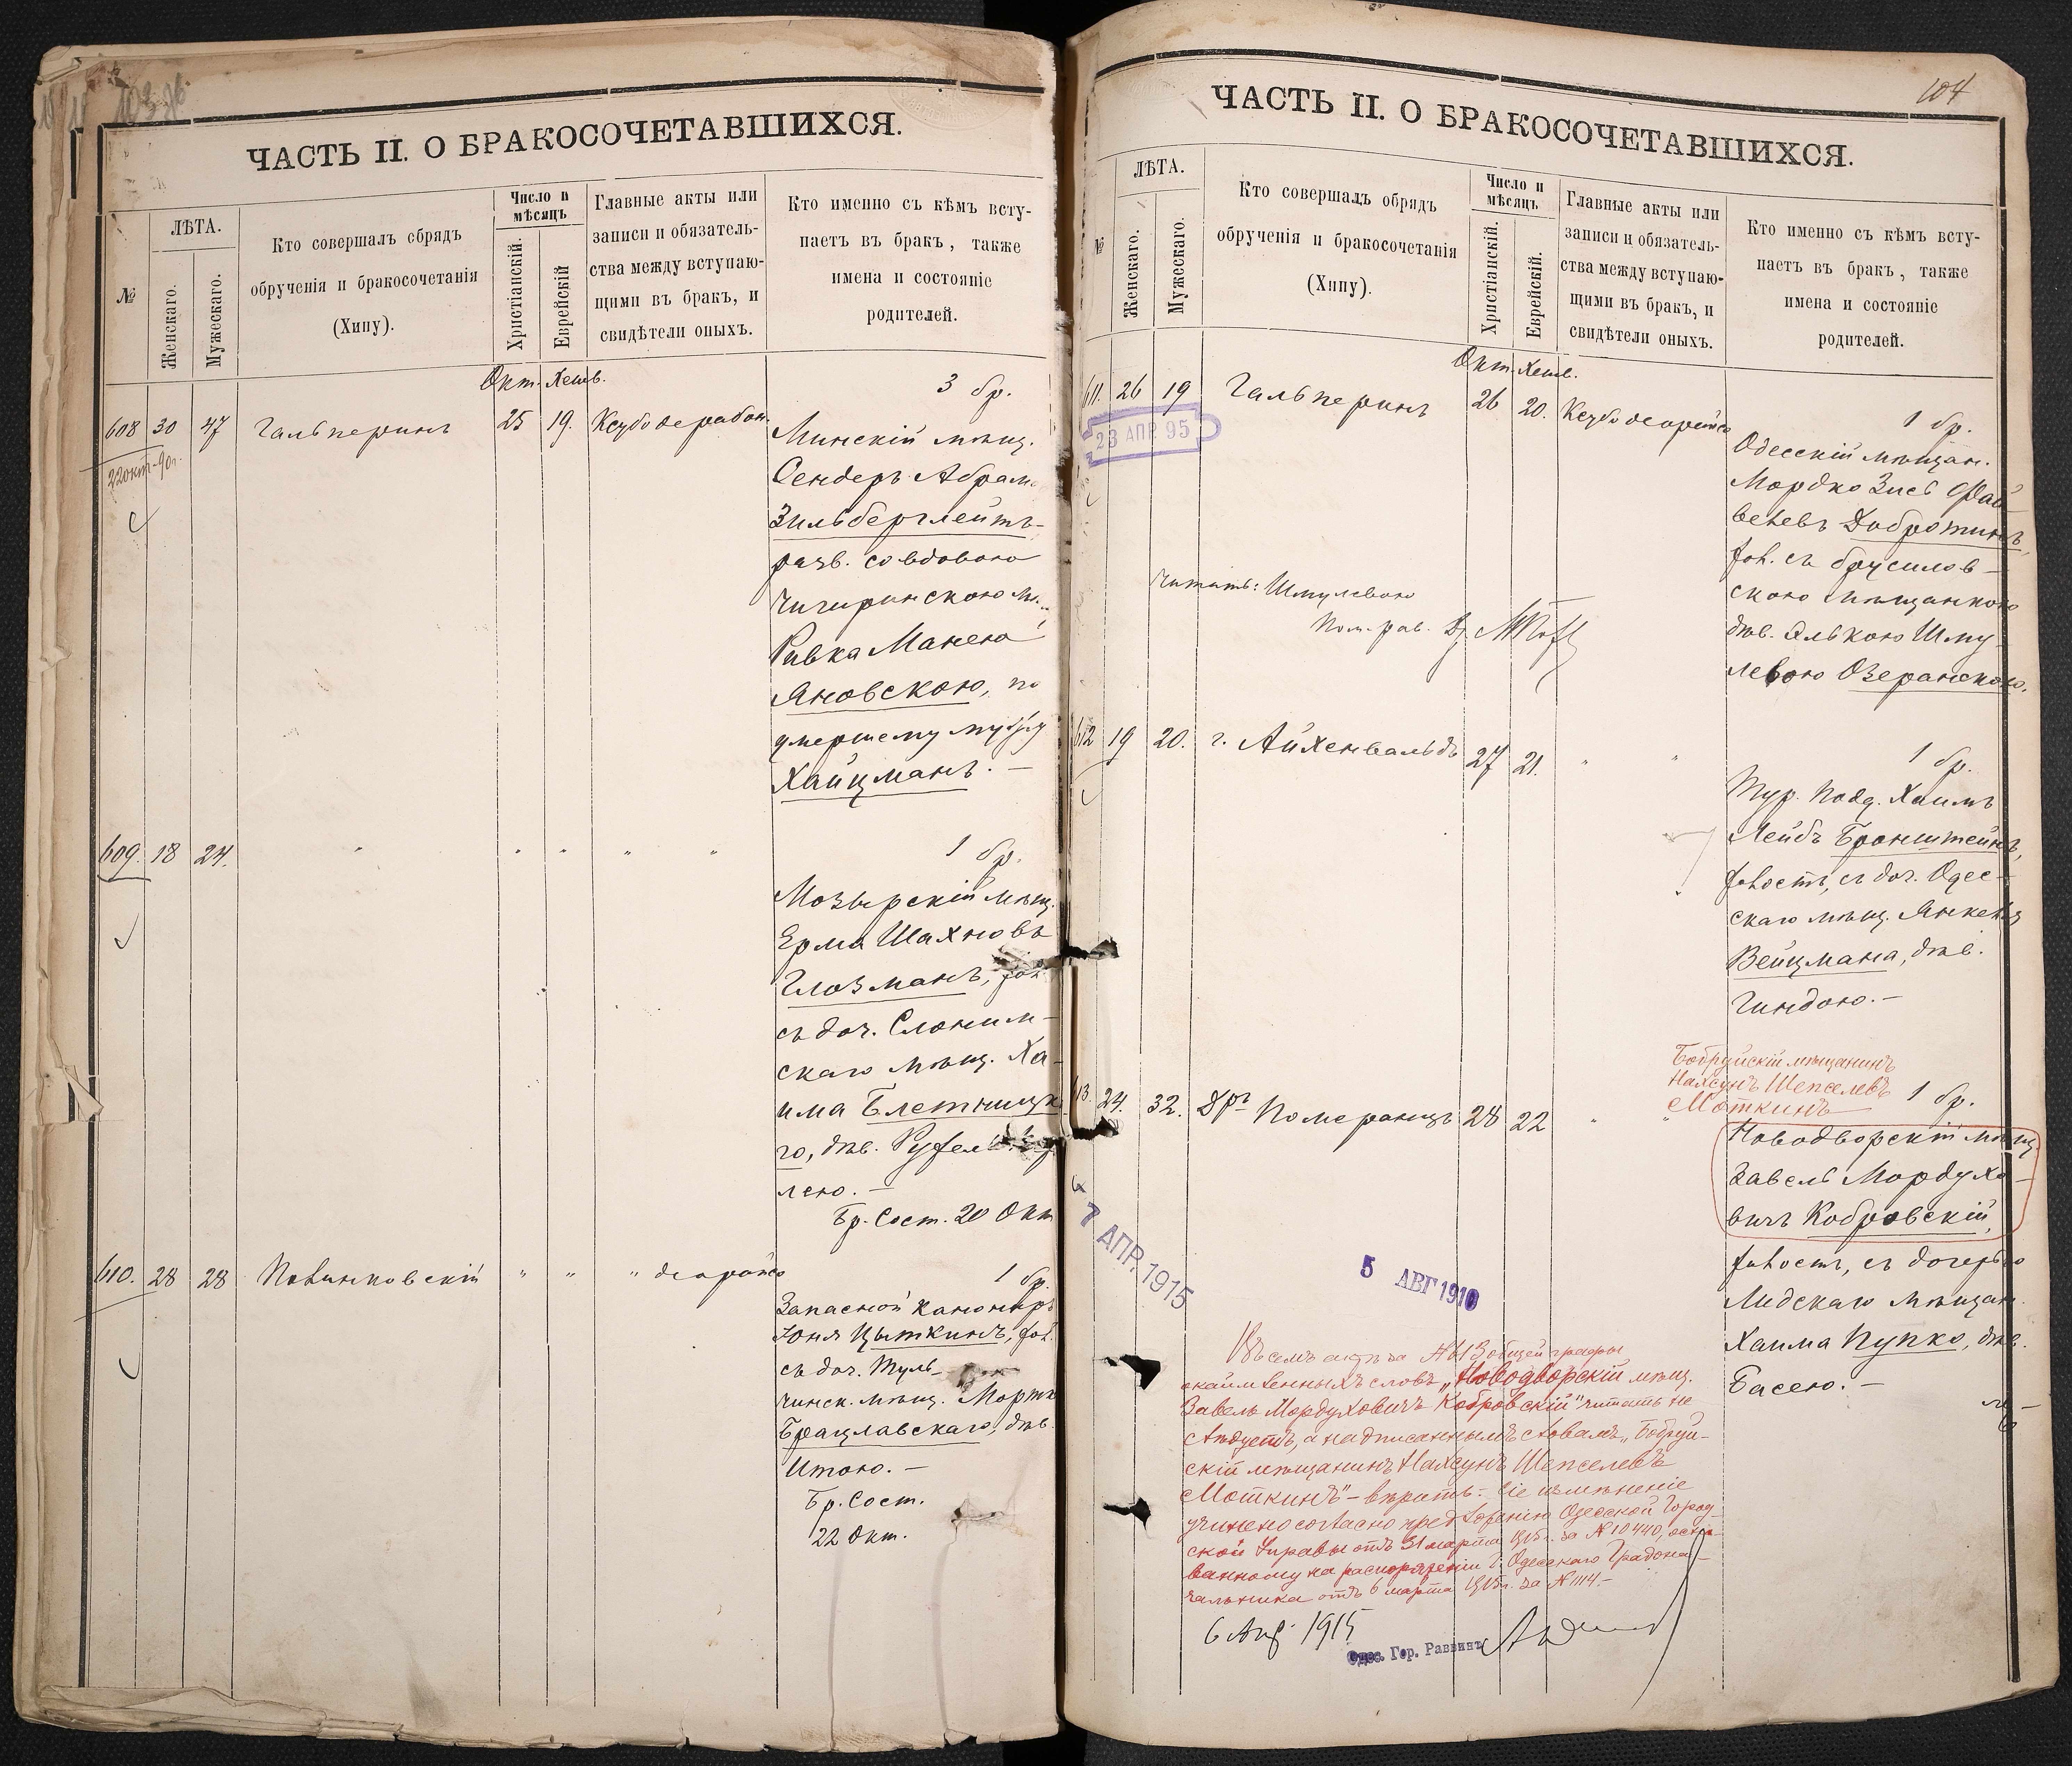 ЧАСТЬ II. О БРАКОСОЧЕТАВШИХСЯ.
№
ЛѢТА.
Женскаго.
Мужескаго.
Кто совершалъ обрядъ
обрученія и бракосочетанія
(Хипу).
Число и
мѣсяцъ
Христіанскій.
Еврейскій
Главные акты или
записи и обязатель-
ства между вступаю-
щими въ бракъ, и
свидѣтели оныхъ.
Кто именно съ кѣмъ всту-
паетъ въ бракъ, также
имена и состояніе
родителей.
Окт. Хешв.
3 бр.
608 30 47 Гальперинъ 25 19.
22 окт.
Минскій мѣщ.
Сендеръ Абрам
Зильберглейтъ
разв. со вдовою
Чигиринскою м.
Ривка Манею
Яновскою, по
умершему мужу
Хайцманъ. —
609. 18 24. " " " " "
1 бр.
Мозырскій мѣщ.
Ерма Шахновъ
Глозманъ, хол.
съ доч. Слоним-
скаго мѣщ. Ха-
има Блетницка
го, дѣв.
лею. —
Бр. Сост. 20 Окт
610. 28 28 " " "
1 бр.
Запасной канониръ
Іоня Цыткинъ, хол.
съ доч. Туль-
чинск. мѣщ. Мортк
Брацлавскаго, дѣв.
Итою. —
Бр. Сост.
22 Окт.
104
ЧАСТЬ II. О БРАКОСОЧЕТАВШИХСЯ.
№
ЛѢТА.
Женскаго.
Мужескаго.
Кто совершалъ обрядъ
обрученія и бракосочетанія
(Хипу).
Число и
мѣсяцъ
Христіанскій.
Еврейскій.
Главные акты или
записи и обязатель-
ства между вступаю-
щими въ бракъ, и
свидѣтели оныхъ.
Кто именно съ кѣмъ всту-
паетъ въ бракъ, также
имена и состояніе
родителей.
Окт. Хешв.
611. 26 19 Гальперинъ 26 20.
23 АПР. 95
1 бр.
Одесскій мѣщан.
Мордко Зисъ Фай
велевъ Добротинъ,
хол. съ брусилов-
скою мѣщанкою
дѣв. Элькою Шму
левою Озеранскою.
Читать: Шмулевою
Пом. рав.
612 19 20. г. Айхенвальдъ 27 21. " "
1 бр.
Тур. подд. Хаимъ
Лейбъ Бронштейнъ,
холост., съ доч. Одес-
скаго мѣщ. Янкеля
Вейцмана, дѣв.
Гиндою. —
Бобруйскій мѣщанинъ
Нахсунъ Шепселевъ
Моткинъ
613. 24. 32. Дръ Померанцъ 28 22 " "
1 бр.
Новодворскій мѣщ.
Завель Мордухо-
вичъ Кобровскій,
холост., съ дочерью
Лидскаго мѣщан.
Хаима Пупко, дѣв.
Басею. —
7 АПР. 1915
5 АВГ 1910
Въ семъ актѣ за №613 общей графы
окаймленныхъ словъ „Новодворскій мѣщ.
Завель Мордуховичъ Кобровскій" читать не
слѣдуетъ, а надписаннымъ словамъ „Бобруй-
скій мѣщанинъ Нахсунъ Шепселевъ
Моткинъ" — вѣрить. — Сіе измѣненіе
учинено согласно предложенію Одесской Город-
ской Управы отъ 31 марта 1915 г. за № 10440, осно-
ванному на распоряженіи Г. Одесскаго Градона-
чальника отъ 6 марта 1915 г. за № 1114. —
6 Апр. 1915
Одес. Гор. Раввинъ